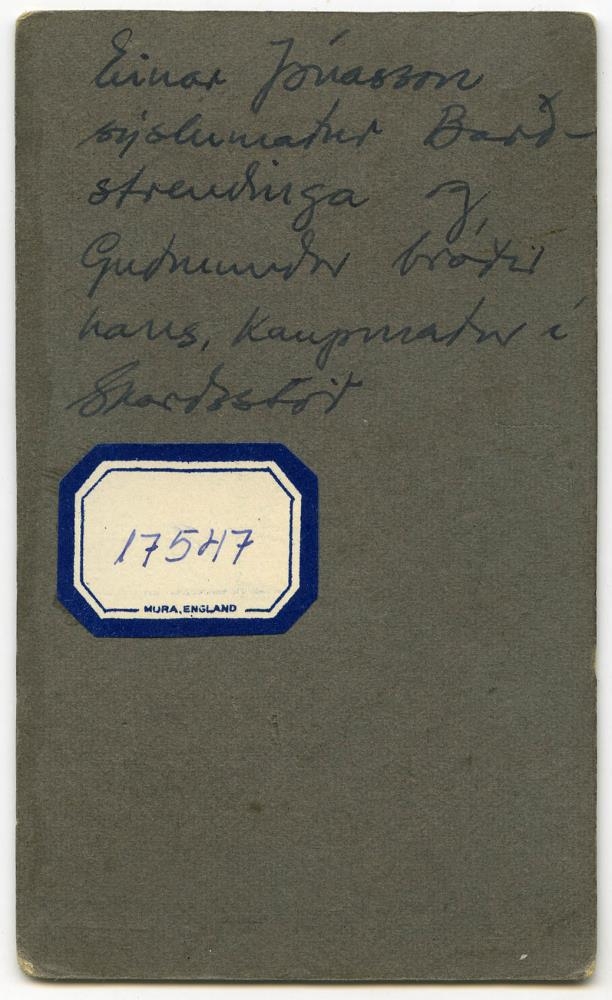 Einar Jónasson
sýslumaður Barð-
strendinga og
Guðmundur bróðir
hans, kaupmaður í
Skarðsstöð
17547
MURA, ENGLAND